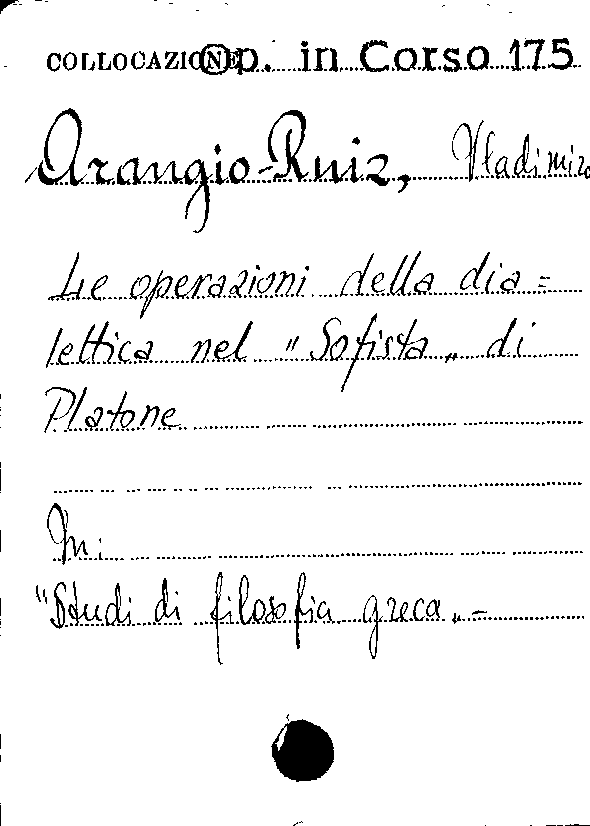 COLLOCAZIONE Op. in Corso 175
Arangio-Ruiz, Vladimiro
Le operazioni della dia=
lettica nel "Sofista" di
Platone
In:
"Studi di filosofia greca".-